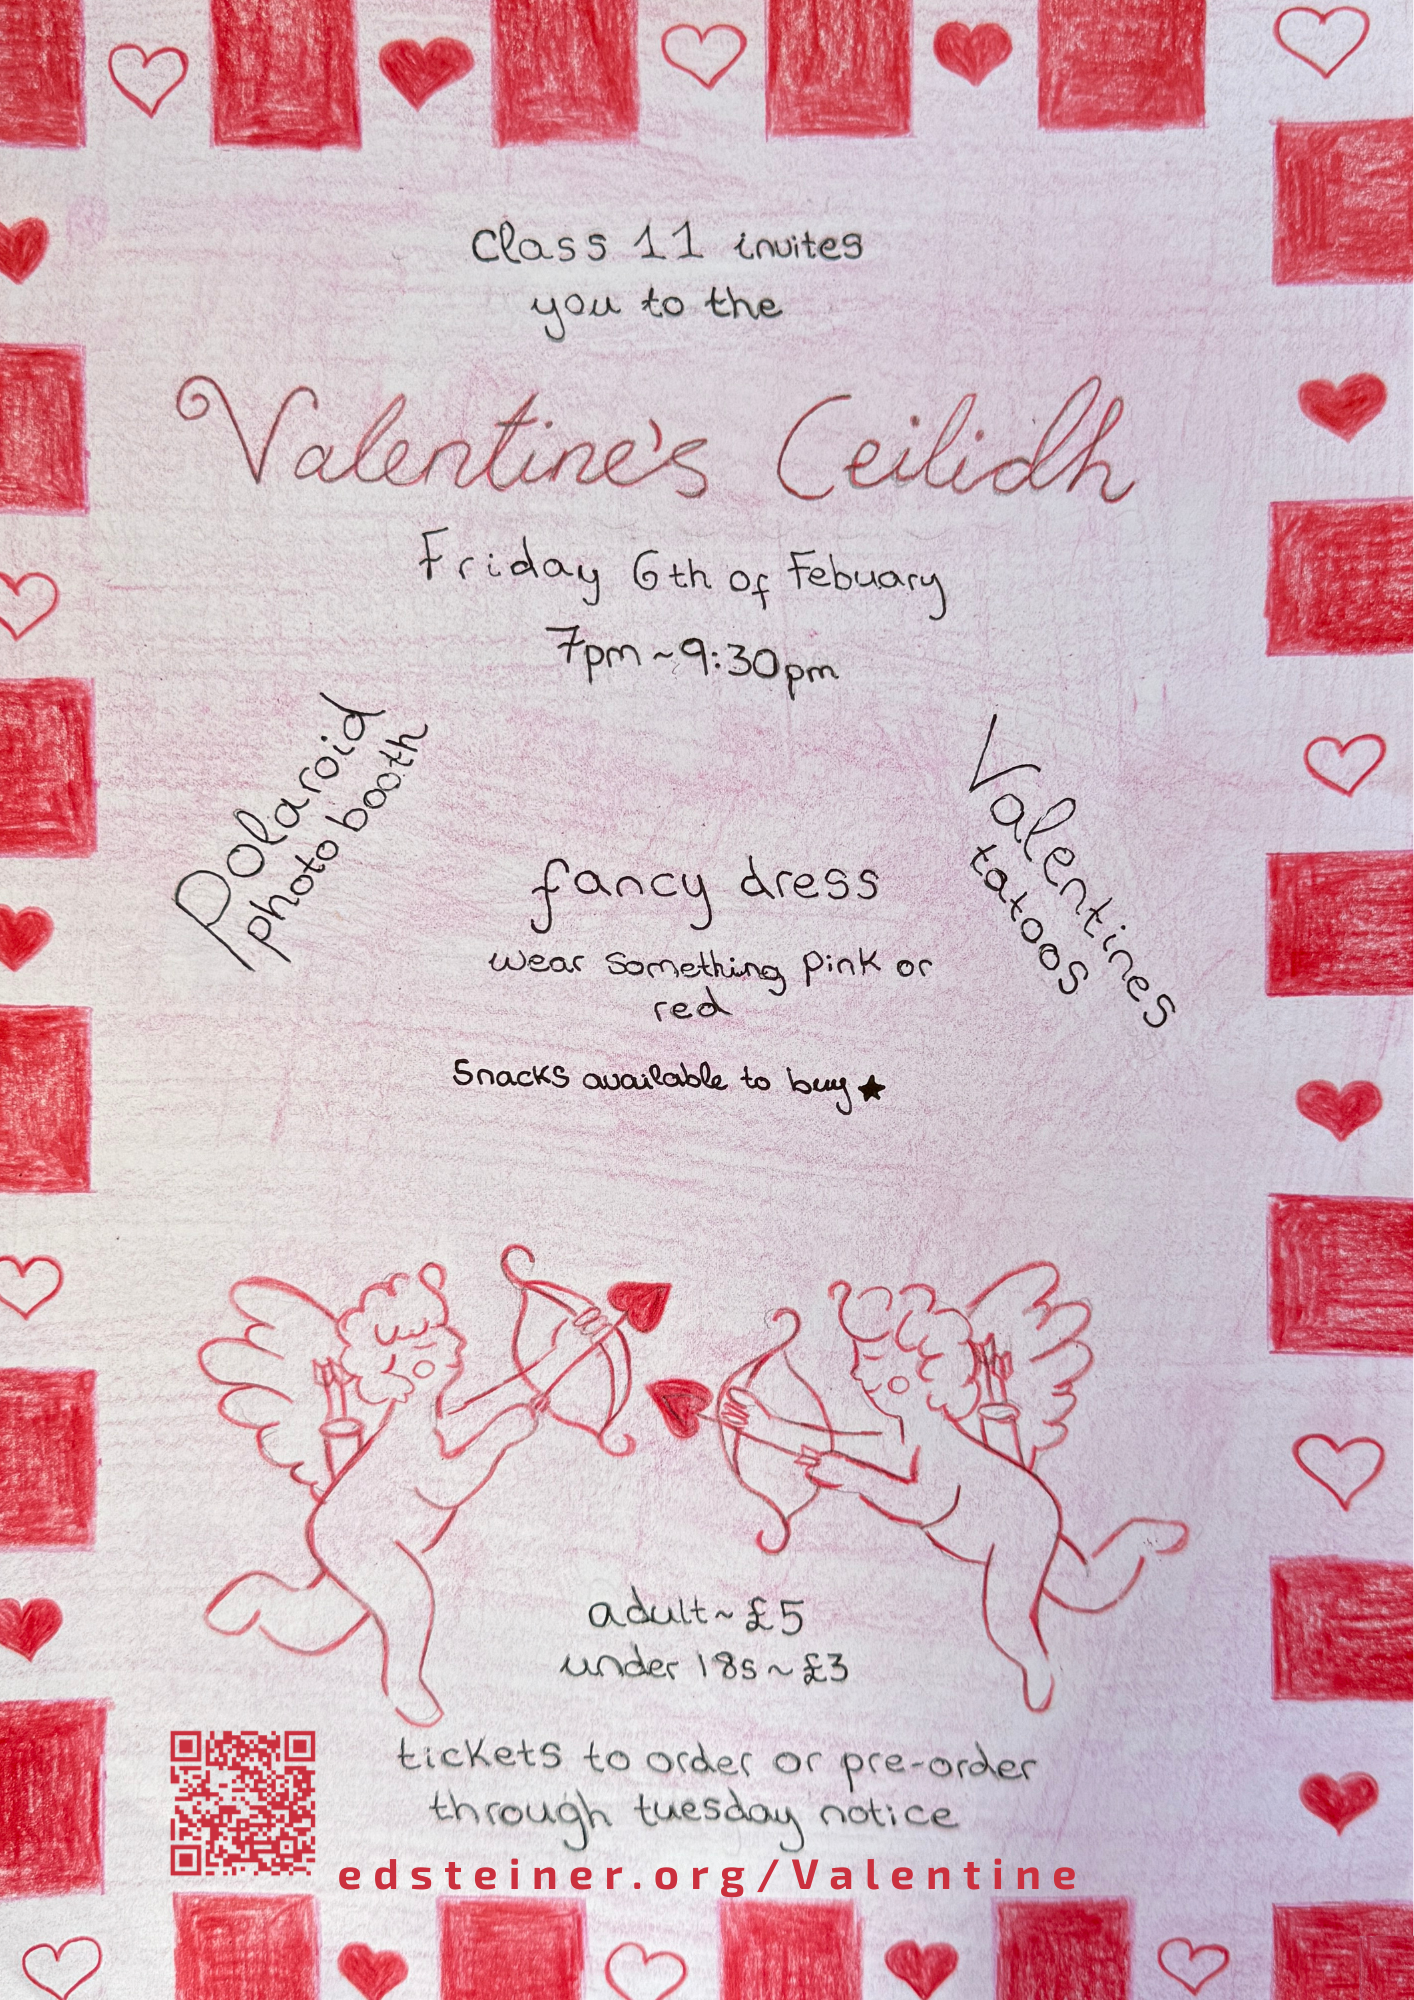 Class 11 invites
you to the
Valentine's Ceilidh
Friday 6th of Febuary
7pm ~ 9:30pm
Polaroid
photo booth
Valentines
tatoos
fancy dress
wear something pink or
red
Snacks available to buy ★
adult ~ £5
under 18s ~ £3
tickets to order or pre-order
through tuesday notice
edsteiner.org/Valentine